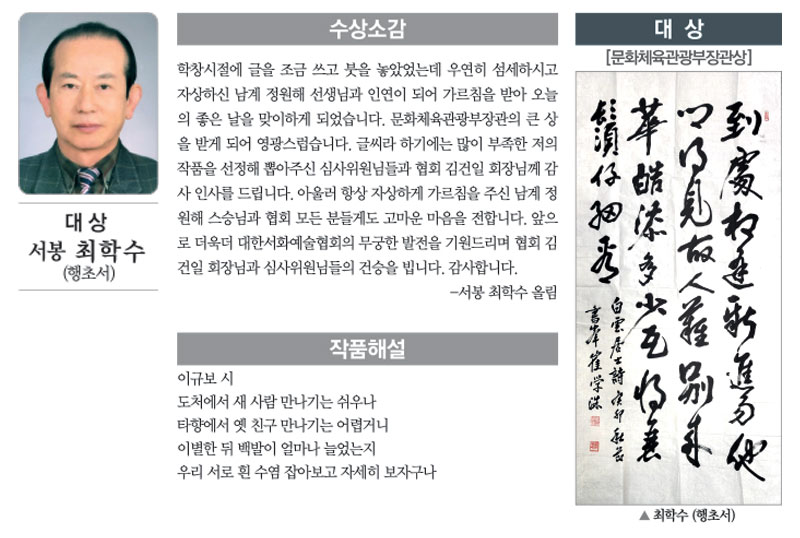 대 상
서봉 최학수
(행초서)
수상소감
학창시절에 글을 조금 쓰고 붓을 놓았었는데 우연히 섬세하시고
자상하신 남계 정원해 선생님과 인연이 되어 가르침을 받아 오늘
의 좋은 날을 맞이하게 되었습니다. 문화체육관광부장관의 큰 상
을 받게 되어 영광스럽습니다. 글씨라 하기에는 많이 부족한 저의
작품을 선정해 뽑아주신 심사위원님들과 협회 김건일 회장님께 감
사 인사를 드립니다. 아울러 항상 자상하게 가르침을 주신 남계 정
원해 스승님과 협회 모든 분들게도 고마운 마음을 전합니다. 앞으
로 더욱더 대한서화예술협회의 무궁한 발전을 기원드리며 협회 김
건일 회장님과 심사위원님들의 건승을 빕니다. 감사합니다.
–서봉 최학수 올림
작품해설
이규보 시
도처에서 새 사람 만나기는 쉬우나
타향에서 옛 친구 만나기는 어렵거니
이별한 뒤 백발이 얼마나 늘었는지
우리 서로 흰 수염 잡아보고 자세히 보자구나
대 상
[문화체육관광부장관상]
到處相逢新進易他
得見故人難別來
華皓添多少互將
鬚仔細看
白雲居士詩
崔学洙
▲ 최학수 (행초서)